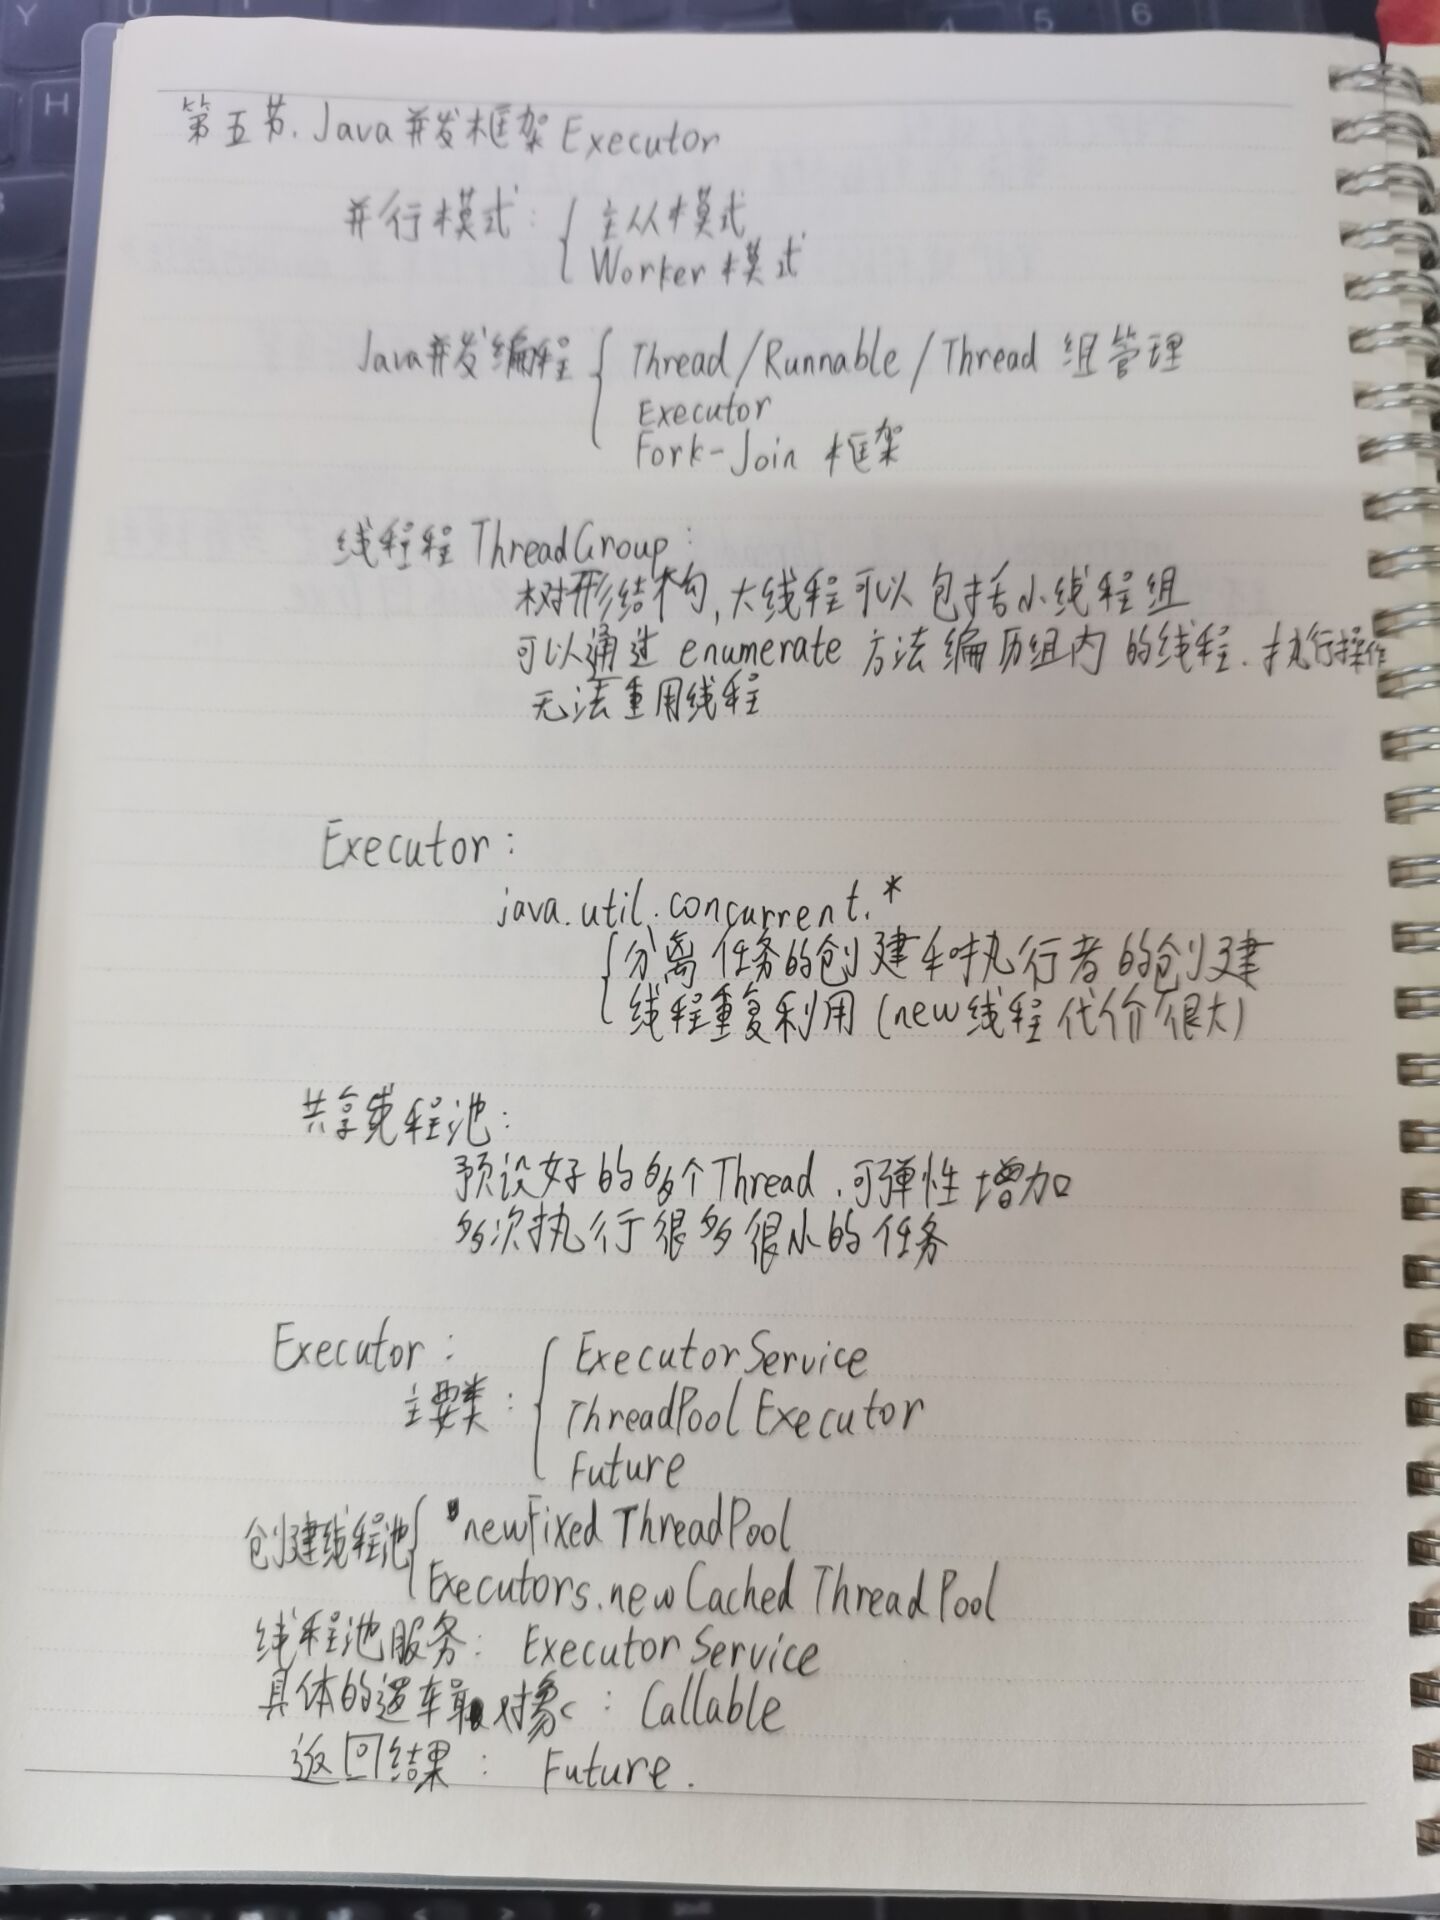 第五节. Java并发框架 Executor
并行模式: { 主从模式
Worker模式
Java并发编程 { Thread/Runnable/Thread 组管理
Executor
Fork-Join 框架
线程程 ThreadGroup:
树形结构,大线程可以包括小线程组
可以通过 enumerate 方法编历组内的线程.执行操作
无法重用线程
Executor:
java.util.concurrent.*
{ 分离任务的创建和执行者的创建
线程重复利用(new线程代价很大)
共享线程池:
预设好的多个Thread.可弹性增加
多次执行很多很小的任务
Executor: { ExecutorService
主要类: ThreadPoolExecutor
Future
创建线程池 { newFixedThreadPool
Executors.newCachedThreadPool
线程池服务: ExecutorService
具体的逻辑对象: Callable
返回结果: Future.